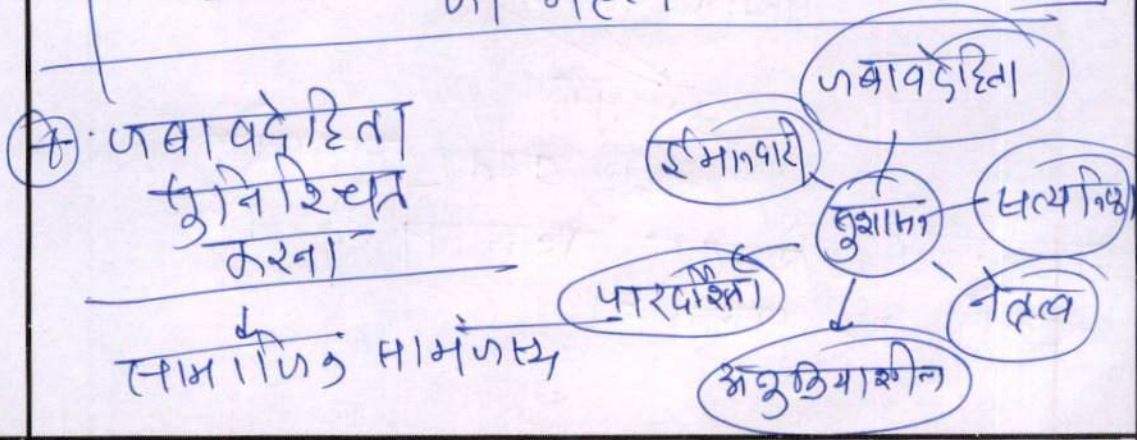 ④. जबावदेहिता
सुनिश्चित
करना
सामाजिक सामंजस्य
जबावदेहिता
ईमानदारी
सुशासन
सत्यनिष्ठा
पारदर्शिता
नेतृत्व
अनुक्रियाशील